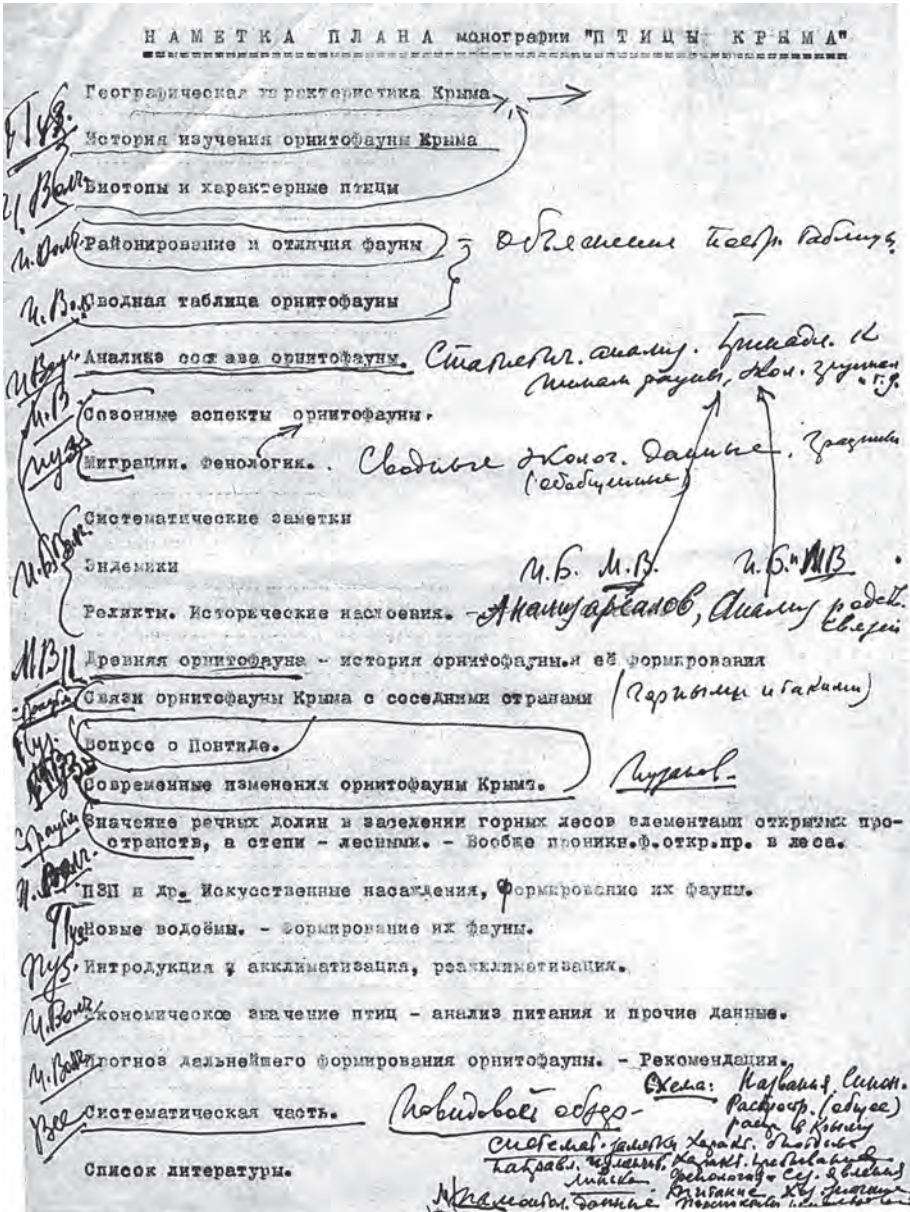 НАМЕТКА ПЛАНА монографии "ПТИЦЫ КРЫМА"
Географическая характеристика Крыма
Пуз. История изучения орнитофауны Крыма
И. Волч. Биотопы и характерные птицы
И. Волч. Районирование и отличия фауны - Объяснения
И. Волч. Сводная таблица орнитофауны
И. Волч. Анализ состава орнитофауны. Статистич. анализ.
типам фауны, экол. группам и т.д.
М.В Сезонные аспекты орнитофауны.
Пуз. Миграции. Фенология. Сводные эколог. данные.
(обобщенные)
Систематические заметки
И.Б. Волч. Эндемики И.Б. М.В. И.Б. МВ
Реликты. Исторические наслоения. - Анализ ареалов, Анализ родств.
связей
МВ Древняя орнитофауна - история орнитофауны.и её формирования
Связи орнитофауны Крыма с соседними странами (горными и такими)
Пуз. Вопрос о Понтиде.
Современные изменения орнитофауны Крыма. Пузанов.
Значение речных долин в заселении горных лесов элементами открытых про-
странств, а степи - лесными. - Вообще проникн.ф.откр.пр. в леса.
И. Волч. ПЗП и др. Искусственные насаждения, Формирование их фауны.
Пуз Новые водоёмы. - Формирование их фауны.
Пуз. Интродукция и акклиматизация, реакклиматизация.
И. Волч. Экономическое значение птиц - анализ питания и прочие данные.
И. Волч. Прогноз дальнейшего формирования орнитофауны. - Рекомендации.
Все Систематическая часть. Повидовой обзор - Схема: Названия, Синон.
Распростр. (общее)
расп. в Крыму
системат. заметки
Список литературы.
Линька
данные Питание